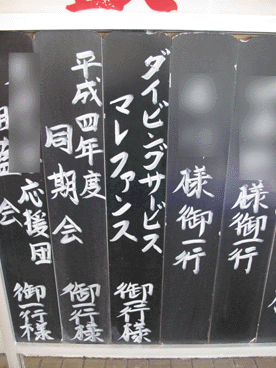 様御一行
様御一行
ダイビングサービス
マレファンス
御一行様
平成四年度
同期会
御一行様
応援団
御一行様
会